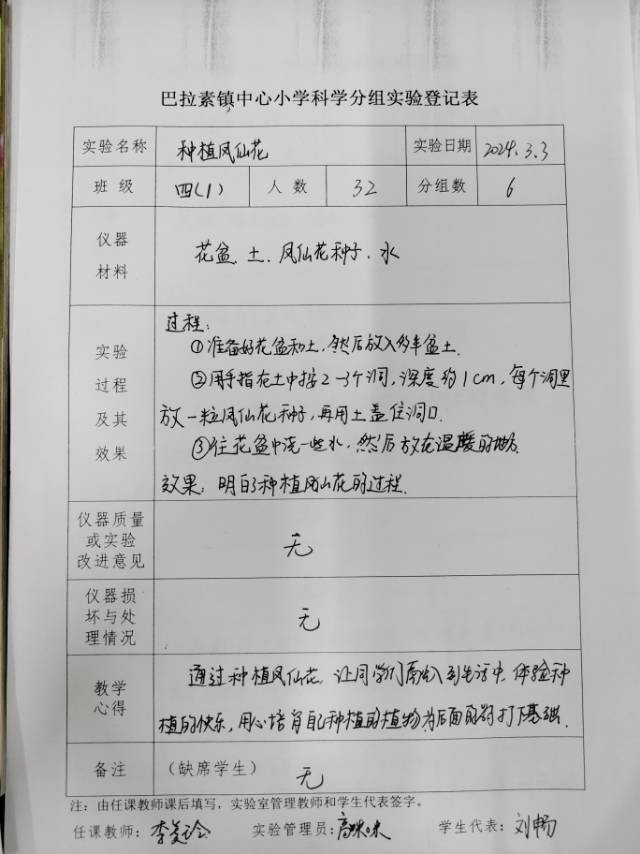 巴拉素镇中心小学科学分组实验登记表
实验名称 种植凤仙花 实验日期 2024.3.3
班 级 四(1) 人 数 32 分组数 6
仪器
材料
花盆、土、凤仙花种子、水
实验
过程
及其
效果
过程:
①准备好花盆和土,然后放入多半盆土.
②用手指在土中按2-3个洞,深度约1cm,每个洞里
放一粒凤仙花种子,再用土盖住洞口.
③往花盆中浇一些水,然后放在温暖的地方
效果:明白了种植凤仙花的过程.
仪器质量
或实验
改进意见
无
仪器损
坏与处
理情况
无
教学
心得
通过种植凤仙花,让同学们 到生活中,体验种
植的快乐,用心培育自己种植的植物,为后面的 打下基础.
备注 (缺席学生) 无
注:由任课教师课后填写,实验室管理教师和学生代表签字。
任课教师: 实验管理员: 学生代表:刘畅